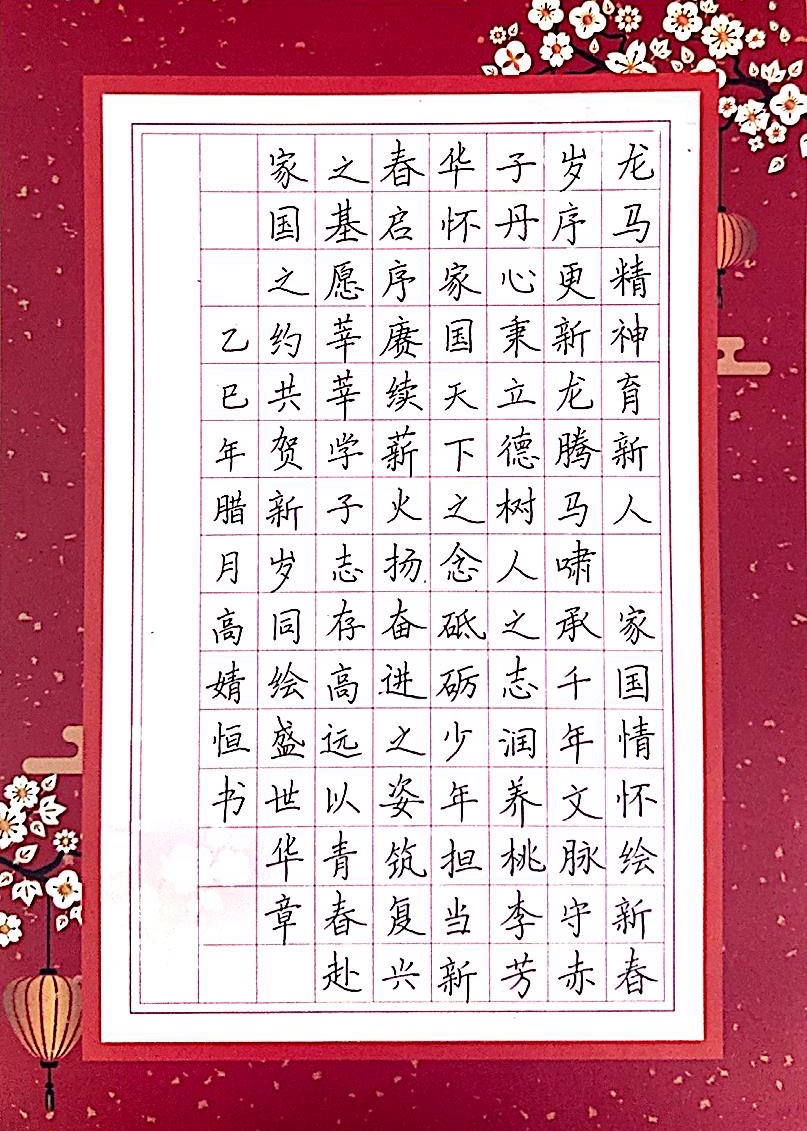 龙马精神育新人 家国情怀绘新春
岁序更新龙腾马啸承千年文脉守赤
子丹心秉立德树人之志润养桃李芳
华怀家国天下之念砥砺少年担当新
春启序赓续薪火扬奋进之姿筑复兴
之基愿莘莘学子志存高远以青春赴
家国之约共贺新岁同绘盛世华章
乙巳年腊月高婧恒书